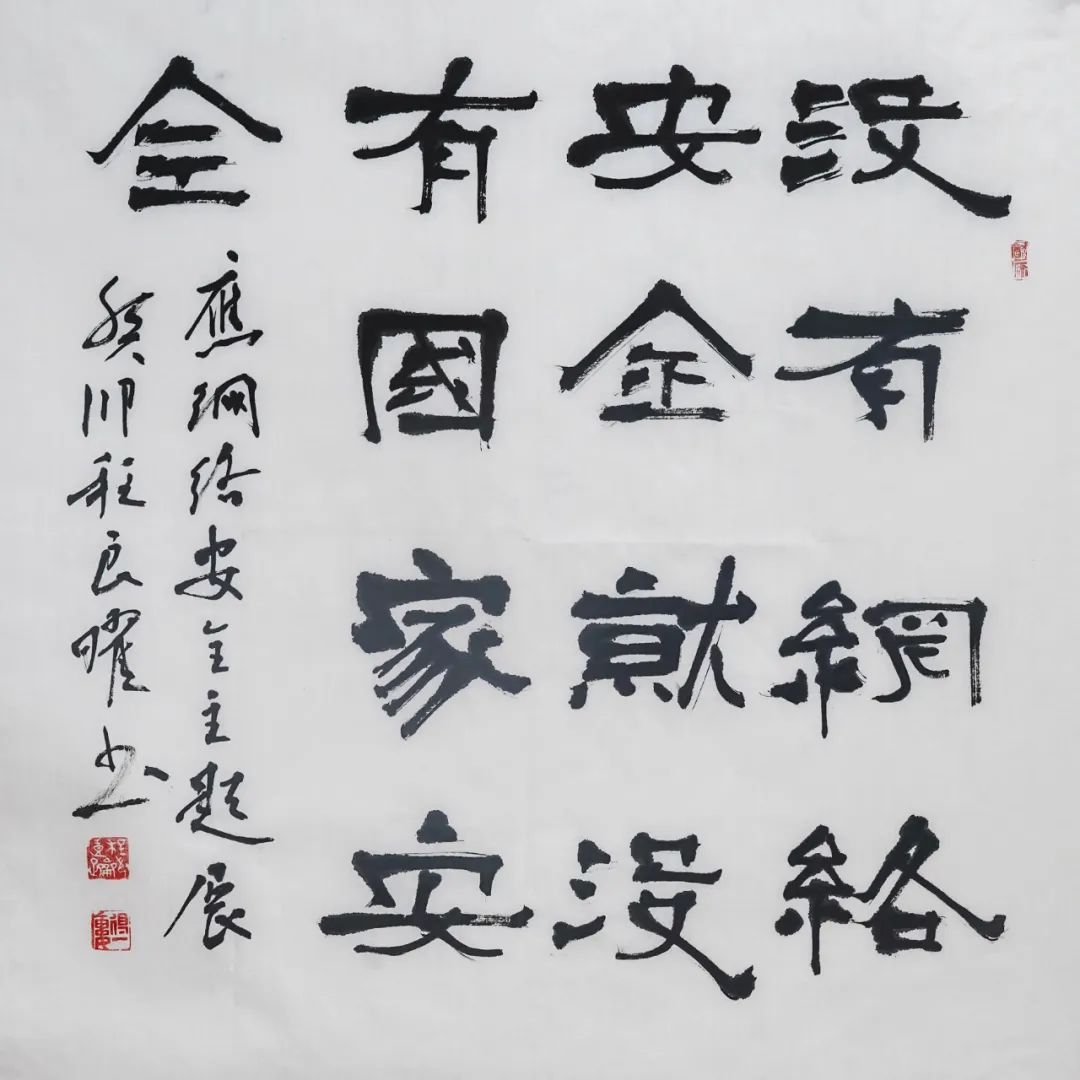 沒有網絡
安全就沒
有國家安
全
應網絡安全主題展
癸卯程良曜书